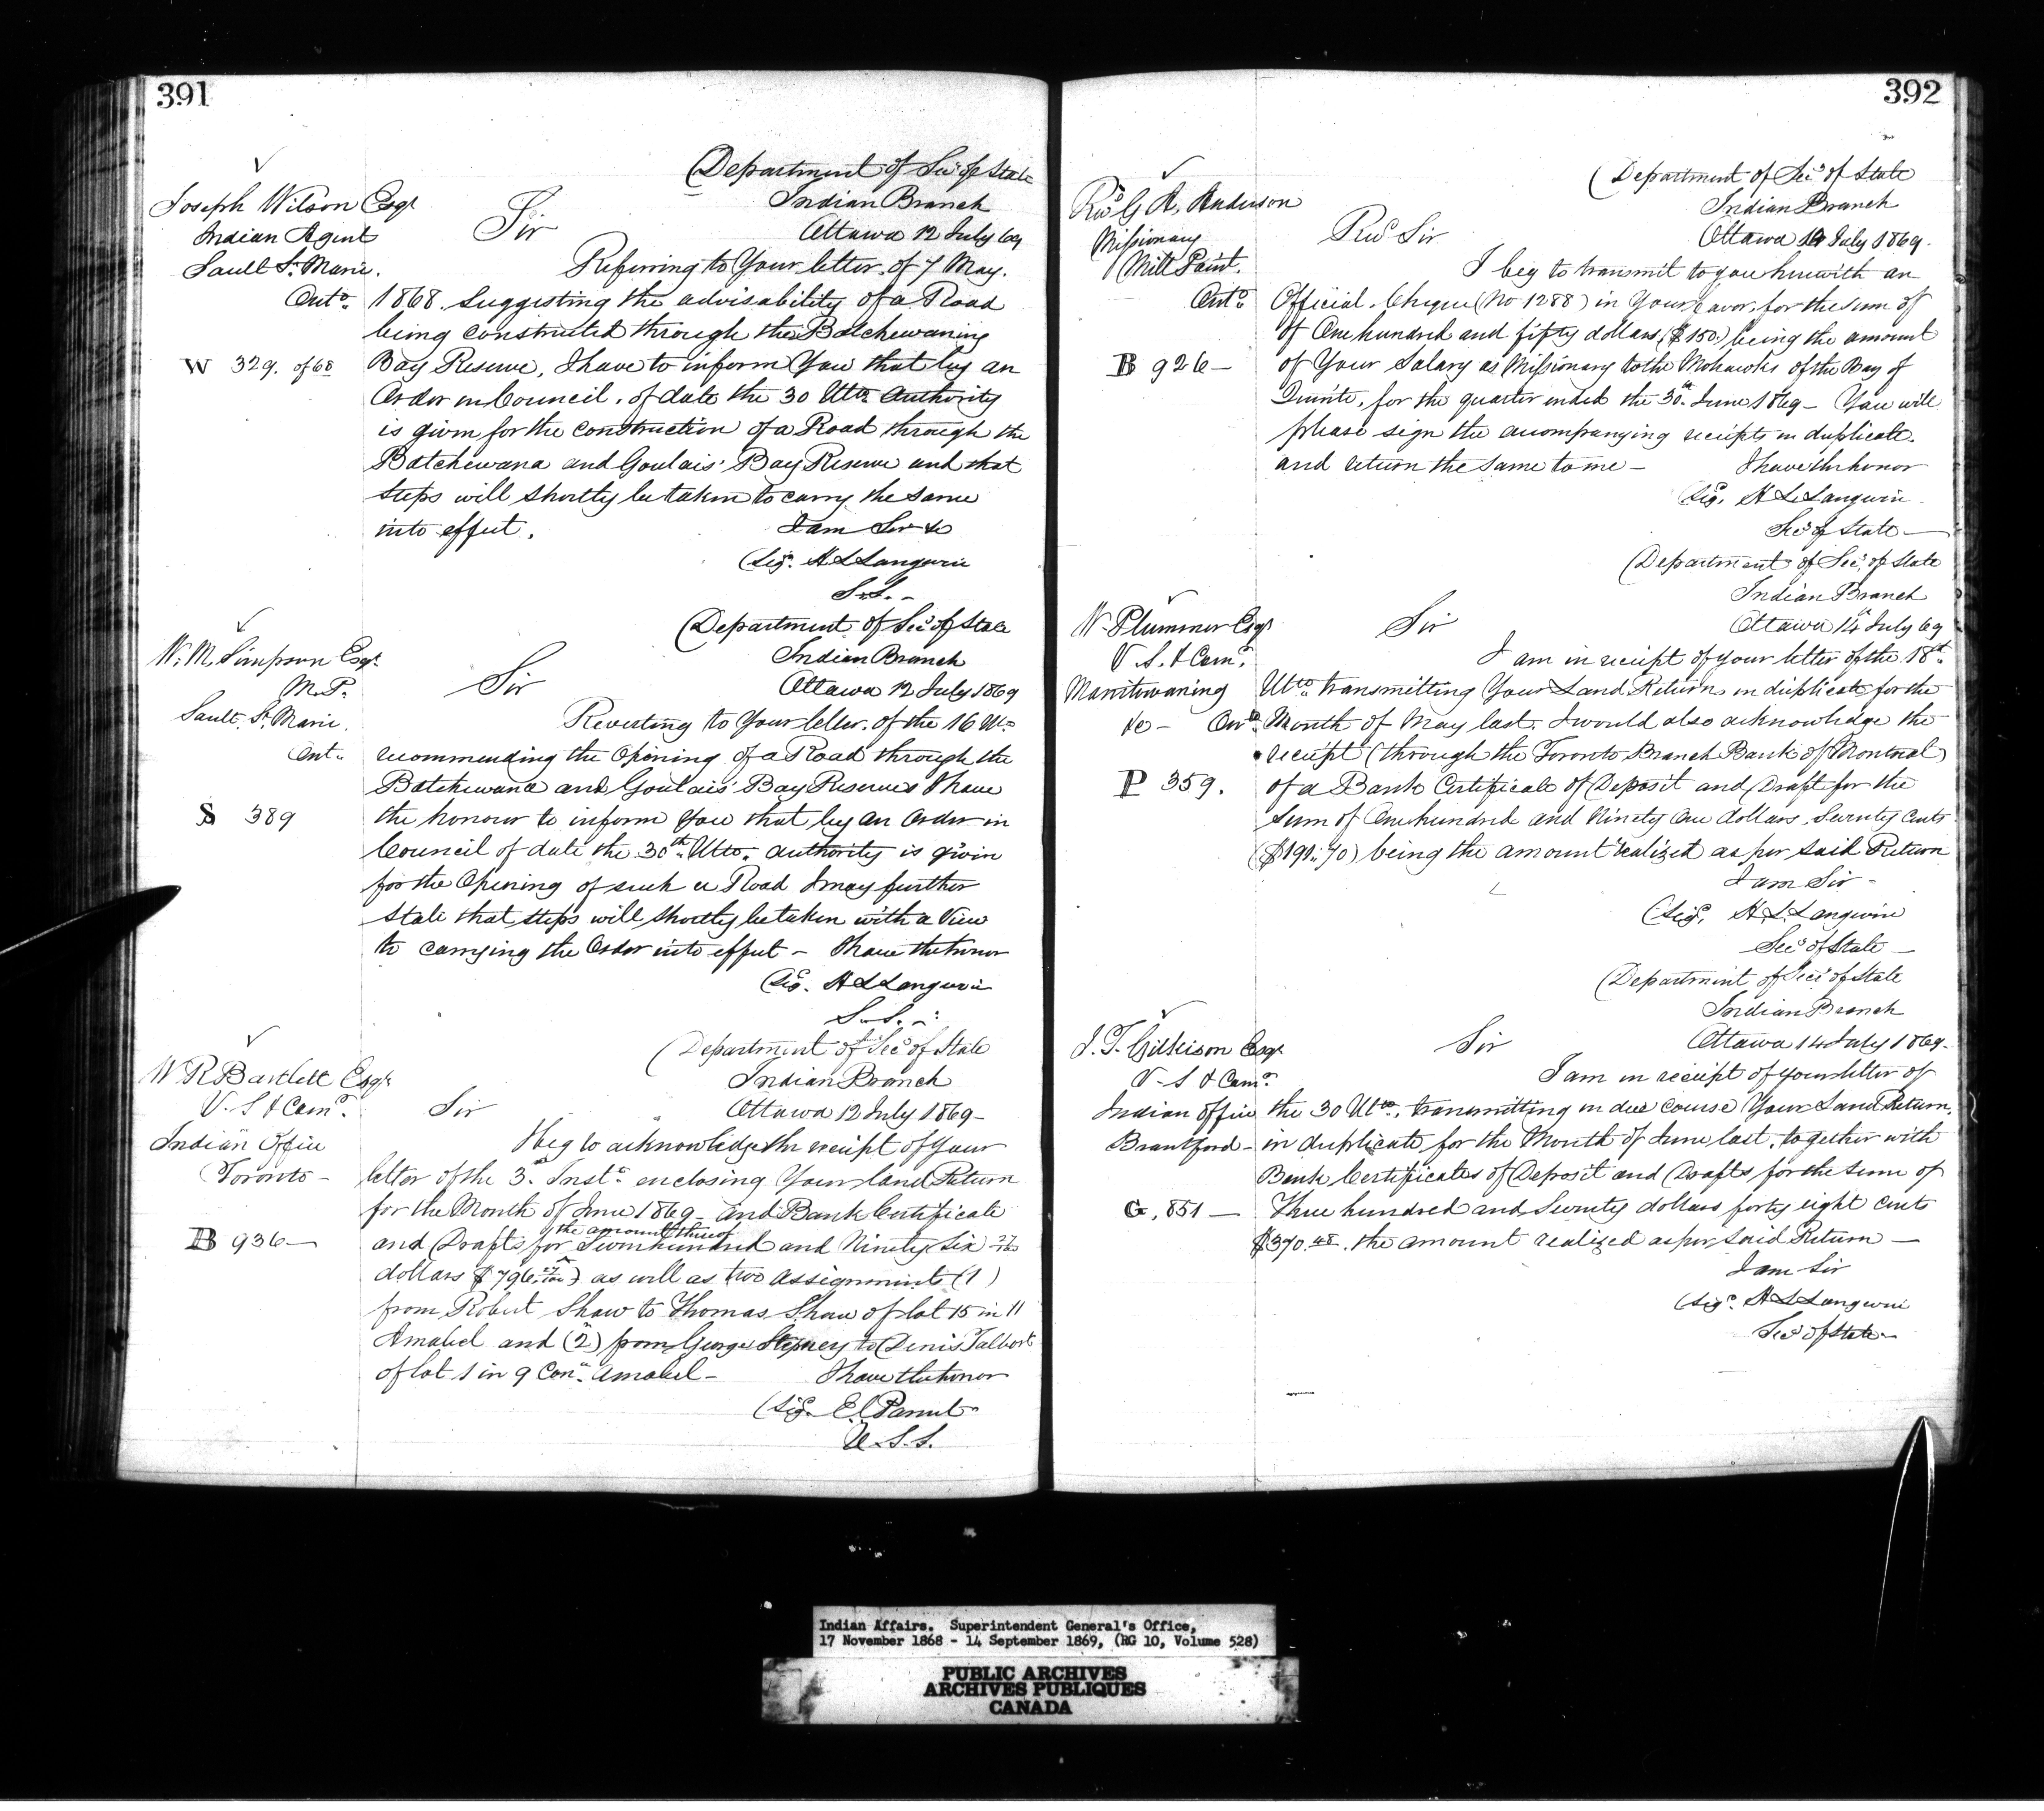 391
Department of Secy of State
Joseph Wilson Esqr
Indian Branch
Indian Agent
Sir
Ottawa 12 July 69
Sault St. Marie.
Referring to Your letter of 7 May.
Onto.
1868. suggesting the advisability of a Road
being constructed through the Batchewaning
W 329. of 68
Bay Reserve, I have to inform You that by an
Order in Council, of date the 30 Ulto. Authority
is given for the construction of a Road through the
Batchewana and Goulais' Bay Reserve and that
steps will shortly be taken to carry the same
into effect.
I am Sir &c
(Sigd. H L Langevin
S.S. -
Department of Secy of State
W. M. Simpson Esqr.
Indian Branch
M.P.
Sir
Ottawa 12 July 1869
Sault St. Marie.
Reverting to Your letter. of the 16 Ulto.
Ont.
recommending the Opening of a Road through the
Batchewana and Goulais' Bay Reserves I have
S 389
the honour to inform You that by an Order in
Council of date the 30th. Ulto. authority is given
for the Opening of such a Road I may further
state that steps will shortly be taken with a View
to carrying the Order into effect - I have the honor
(Sigd. H L Langevin
S.S. -
Department of Secy of State
W R Bartlett Esqr
Indian Branch
V. S & Comr.
Sir
Ottawa 12 July 1869 -
Indian Office
I beg to acknowledge the receipt of Your
Toronto -
letter of the 3d. Inst. enclosing Your land Return
for the Month of June 1869 - and Bank Certificate
the amount thereof
B 936 -
and Drafts for Seven hundred and Ninety Six 27/100
dollars $796.27/100) as well as two assignments (1)
from Robert Shaw to Thomas Shaw of lot 15 in 11
Amabel and (2) from George Stepney to Denis Talbot
of lot 1 in 9 Con. Amabel -
I have the honor
(Sigd. E. Parent
U. S. S.
392
Department of Secy of State
Revd G A. Anderson
Indian Branch
Missionary
Revd Sir
Ottawa 14 July 1869.
Mill Point.
I beg to transmit to you herewith an
Onto
Official. Cheque (No 1288) in Your favor, for the sum of
of One hundred and fifty dollars, ($150.) being the amount
B 926 -
of Your Salary as Missionary to the Mohawks of the Bay of
Quinté, for the quarter ended the 30th. June 1869 - You will
please sign the accompanying receipts in duplicate.
and return the same to me -
I have the honor
(Sigd. H L Langevin
Secy of State -
Department of Secy. of State
Indian Branch
W. Plummer Esqr
Sir
Ottawa 14th July 69
V. S. & Comr.
I am in receipt of your letter of the 18th.
Manitowaning
Ulto. transmitting Your Land Returns in duplicate for the
&c - Onto
Month of May last. I would also acknowledge the
receipt (through the Toronto Branch Bank of Montreal)
P 359.
of a Bank Certificate of Deposit and Draft for the
Sum of One hundred and Ninety One dollars, Seventy Cents
($191.70) being the amount realized as per said Return
I am Sir -
(Sigd. H. L. Langevin
Secy of State -
Department of Secy of State
Indian Branch
J. T. Gilkison Esqr
Sir
Ottawa 14 July 1869 -
V. S & Comr.
I am in receipt of your letter of
Indian Office
the 30 Ulto, transmitting in due course Your Land Return,
Brantford -
in duplicate for the Month of June last, together with
Bank Certificates of Deposit and Drafts for the sum of
G. 851 -
Three hundred and Seventy dollars forty eight cents
$370.48. the amount realized as per said Return -
I am Sir
(Sigd. H L Langevin
Secy of State -
Indian Affairs. Superintendent General's Office,
17 November 1868 - 14 September 1869, (RG 10, Volume 528)
PUBLIC ARCHIVES
ARCHIVES PUBLIQUES
CANADA